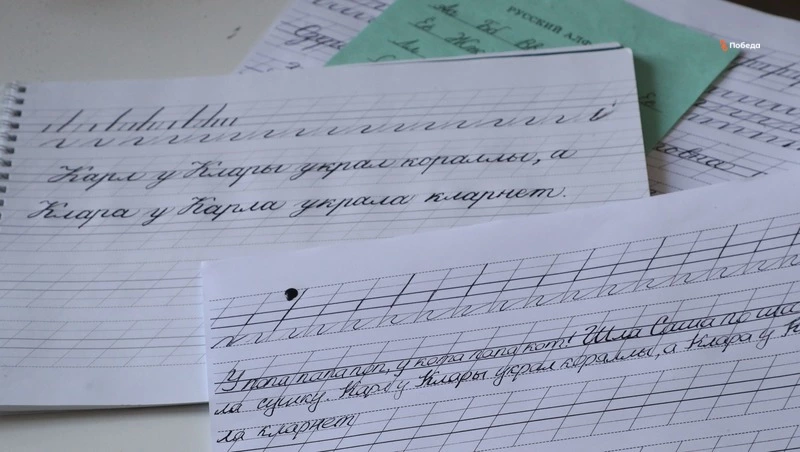 Победа
РУССКИЙ АЛФ
Аа Бб Вв
Карл у Клары украл кораллы, а
Клара у Карла украла кларнет.
овна
У попа папа поп, у кота папа кот! Шла Саша по
ла сушку. Карл у Клары украл кораллы, а Клара у К
ла кларнет